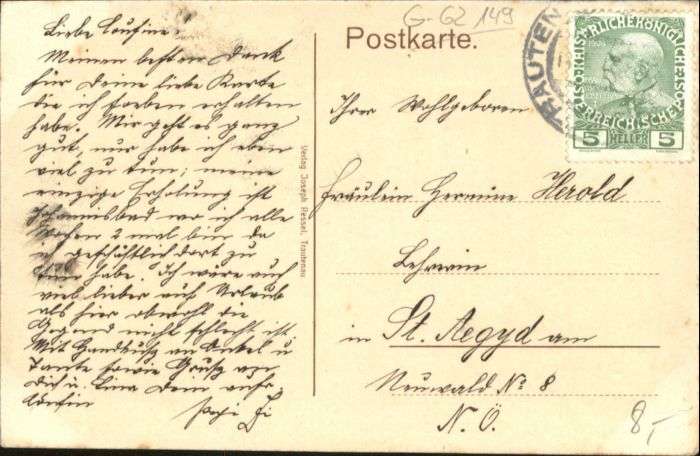 Liebe Cousine!
Meinen besten Dank
für Deine liebe Karte
die ich soeben erhalten
habe. Mir geht es ganz
gut, nur habe ich eben
viel zu tun; meine
einzige Erholung ist
Johannisbad wo ich alle
Wochen 2 mal bin da
ich geschäftlich dort zu
tun habe. Ich wäre auch
viel lieber auf Urlaub
als hier obwohl die
Gegend nicht schlecht ist
Mit Handkuss an Onkel u
Tante sowie Gruss an
Dich u. Lina Dein aufr.
Cousin
G-62 149
Postkarte.
TRAUTEN
KAISERLICHEKÖNIGLICHE
ÖSTERREICHISCHE
1908
5 HELLER 5
Verlag Joseph Pessel, Trautenau
Ihrer Wohlgeboren
Fräulein Hermine Herold
Lehrerin
in St. Aegyd am
Neuwald No 8
N.Ö.
8,-